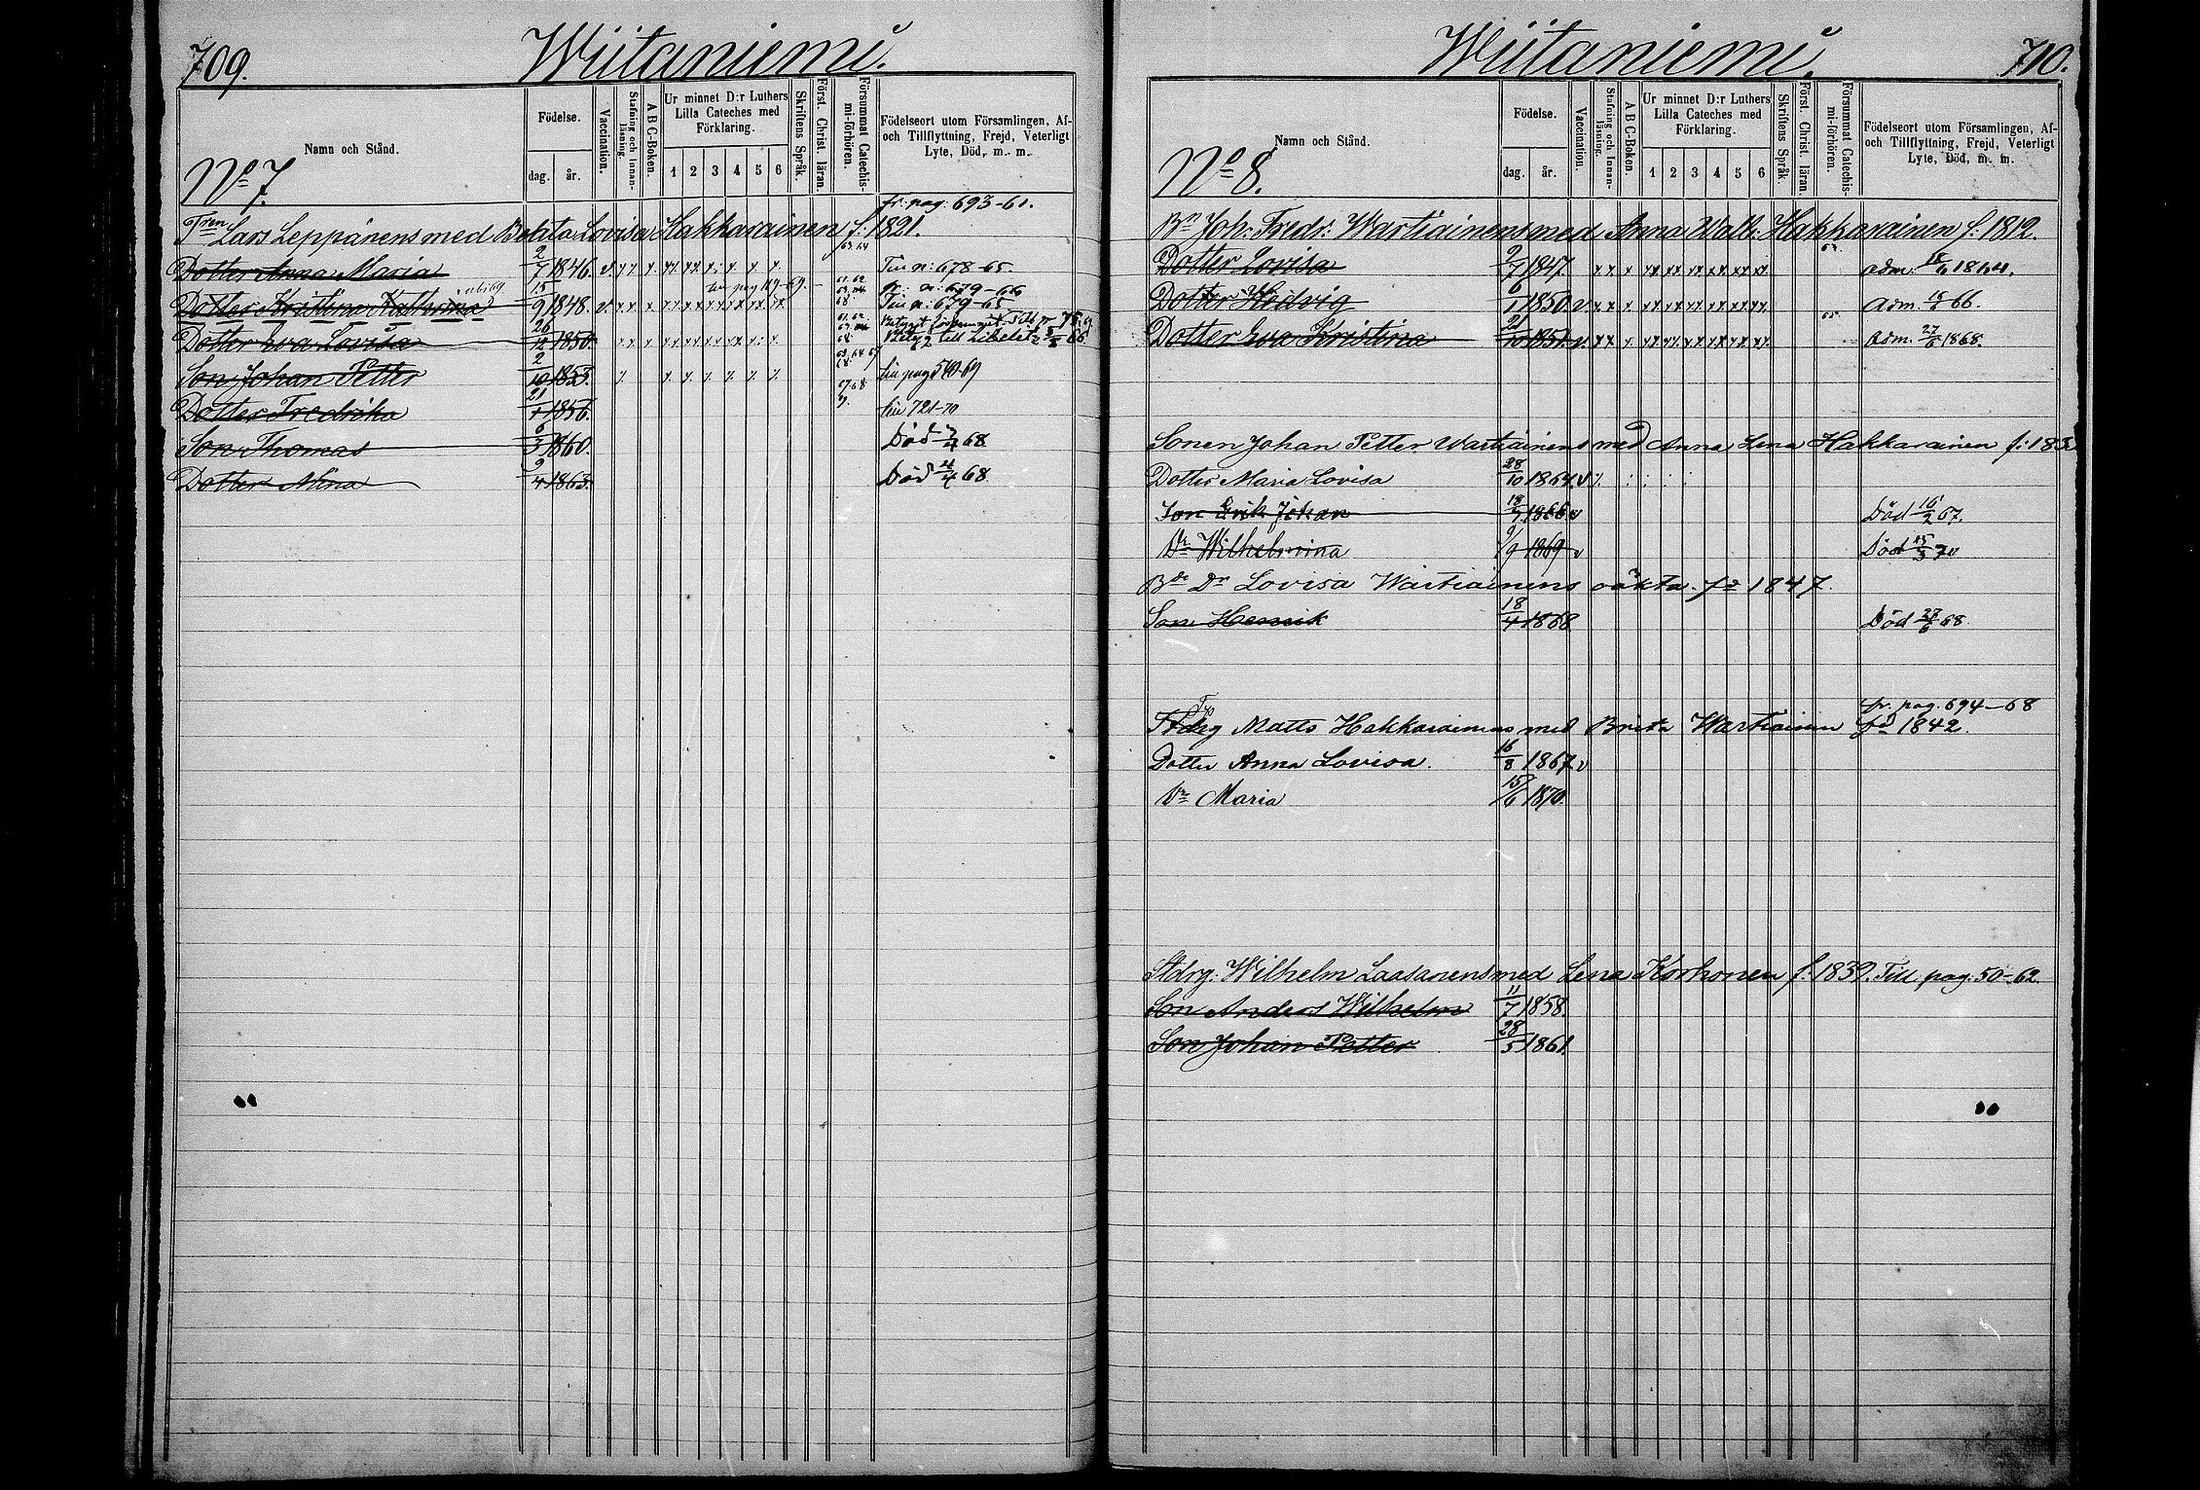 709.
Wiitaniemi.
Namn och Stånd.
No 7.
Födelse.
dag.
år.
Vaccination.
Stafning och Innan-läsning
A B C-Boken.
Ur minnet D:r Luthers
Lilla Cateches med
Förklaring.
1 2 3 4 5 6
Skriftens Språk.
Först. Christ. läran.
Försummat Catechis-mi-förhören.
Födelseort utom Församlingen, Af-
och Tillflyttning, Frejd, Veterligt
Lyte, Död, m. m.
fr. pag: 693-61.
Lars Leppänens med Brita Lovisa Hakkarainen f: 1821.
Dotter Anna Maria 2/7 1846. v 63 64 678-65.
Dotter Kristina Katherina 15/9 1848. v. fr: n: 679-66
679-65
Dotter Eva Lovisa 26/12 1850. till Libelits 66
Son Johan Petter 2/10 1853. pag 540-69
Dotter Fredrika 21/1 1856. 721-70
Son Thomas 6/3 1860. Död 68
Dotter Mina 2/4 1863. Död 68
Wiitaniemi.
710.
Namn och Stånd.
No 8.
Födelse.
dag.
år.
Vaccination.
Stafning och Innan-läsning.
A B C-Boken.
Ur minnet D:r Luthers
Lilla Cateches med
Förklaring.
1 2 3 4 5 6
Skriftens Språk.
Först. Christ. läran.
Försummat Catechis-mi-förhören.
Födelseort utom Församlingen, Af-
och Tillflyttning, Frejd, Veterligt
Lyte, Död, m. m.
Joh: Fredr: Wartiainens med Anna Walb: Hakkarainen f: 1812.
Dotter Lovisa 2/7 1847. adm. 18/6 1864.
Dotter Hedvig 6/1 1850. v. adm. 15/6 66.
Dotter Eva Kristina 21/10 1851. v. adm. 27/6 1868.
Sonen Johan Petter Wartiainens med Anna Lena Hakkarainen f: 183
Dotter Maria Lovisa 28/10 1864. v
Son Erik Johan 18/7 1866 v Död 16/2 67.
Dr Wilhelmina 9/9 1869 v Död 15/3 70
Bde Dr Lovisa Wartiainens oäkta. fd 1847.
Son Henrik 18/4 1868 Död 27/6 68
fr. pag. 694-68
Matts Hakkarainens med Brita Wartiainen fd 1842.
Dotter Anna Lovisa. 16/8 1867 v
Dr Maria 15/6 1870.
Stdrg: Wilhelm Laasanens med Lena Korhonen f: 1839. Till pag. 50-62.
Son Anders Wilhelm 11/7 1858.
Son Johan Petter 28/5 1861.